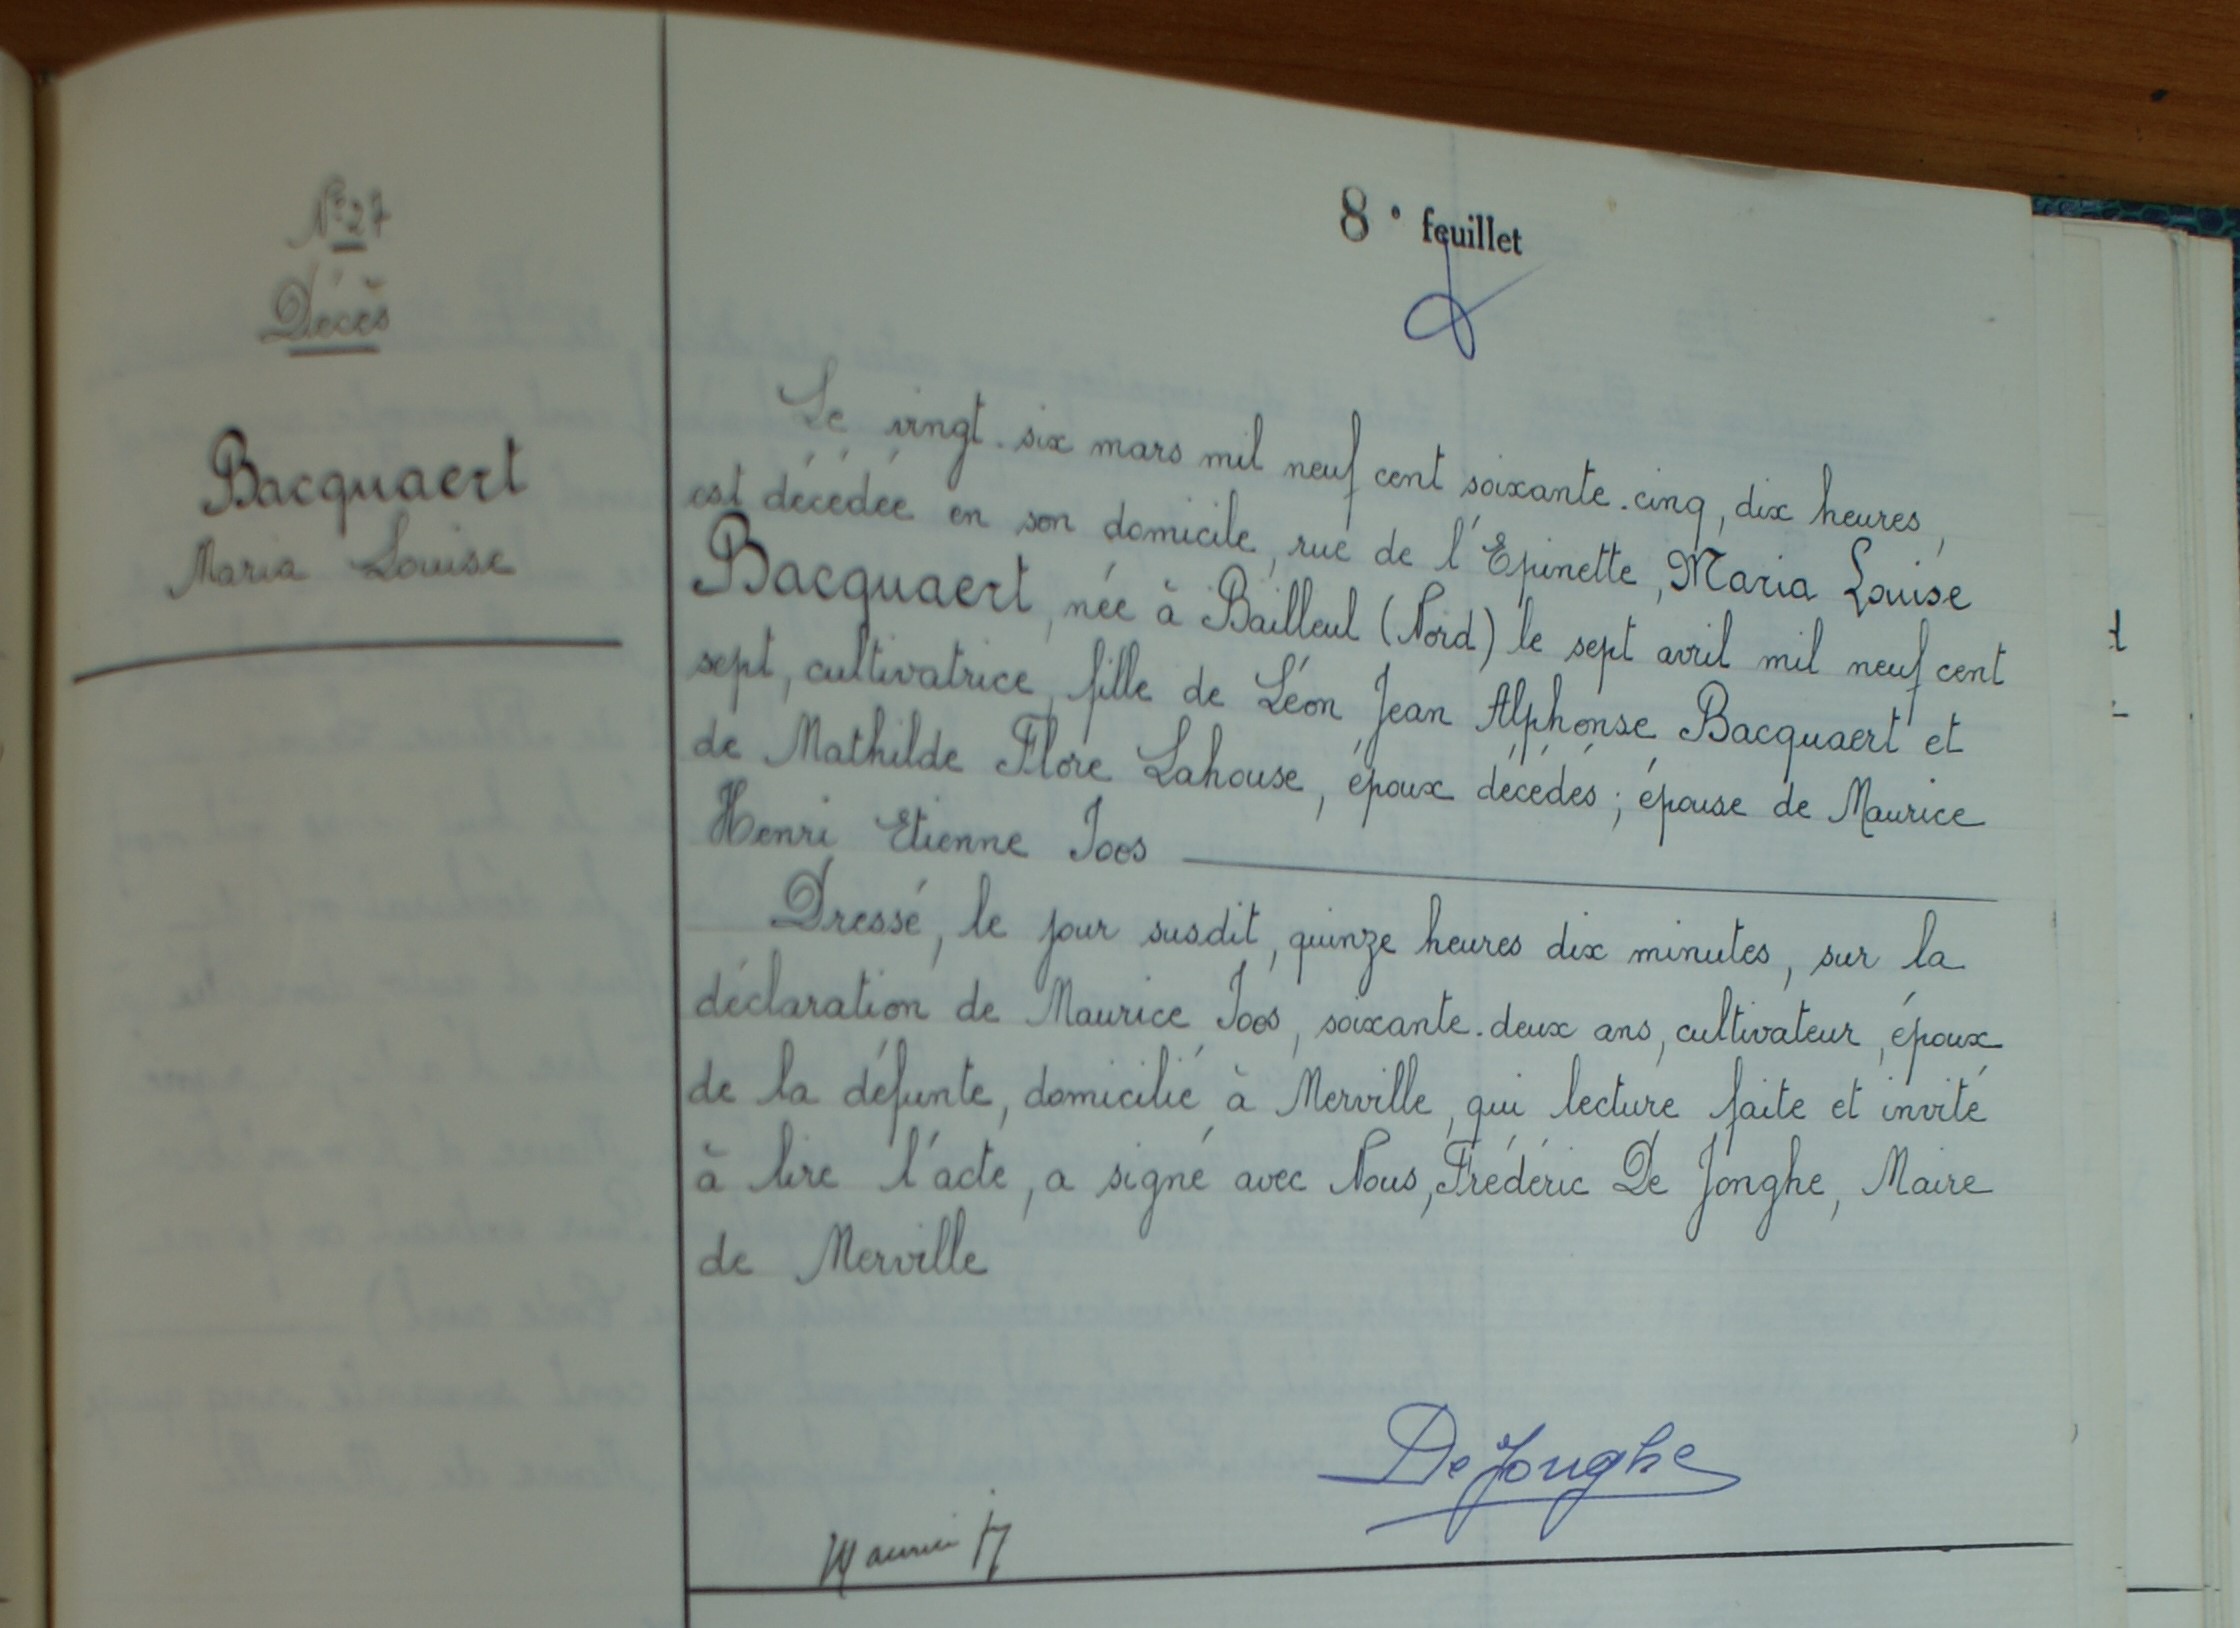 8e feuillet
N° 27
Décès
Bacquaert
Maria Louise
Le vingt-six mars mil neuf cent soixante-cinq, dix heures,
est décédée en son domicile, rue de l'Epinette, Maria Louise
Bacquaert, née à Bailleul (Nord) le sept avril mil neuf cent
sept, cultivatrice, fille de Léon Jean Alphonse Bacquaert et
de Mathilde Flore Lahouse, époux décédés ; épouse de Maurice
Henri Etienne Joos
Dressé, le jour susdit, quinze heures dix minutes, sur la
déclaration de Maurice Joos, soixante-deux ans, cultivateur, époux
de la défunte, domicilié à Merville, qui lecture faite et invité
à lire l'acte, a signé avec Nous, Frédéric De Jonghe, Maire
de Merville
De Jonghe
Maurice J